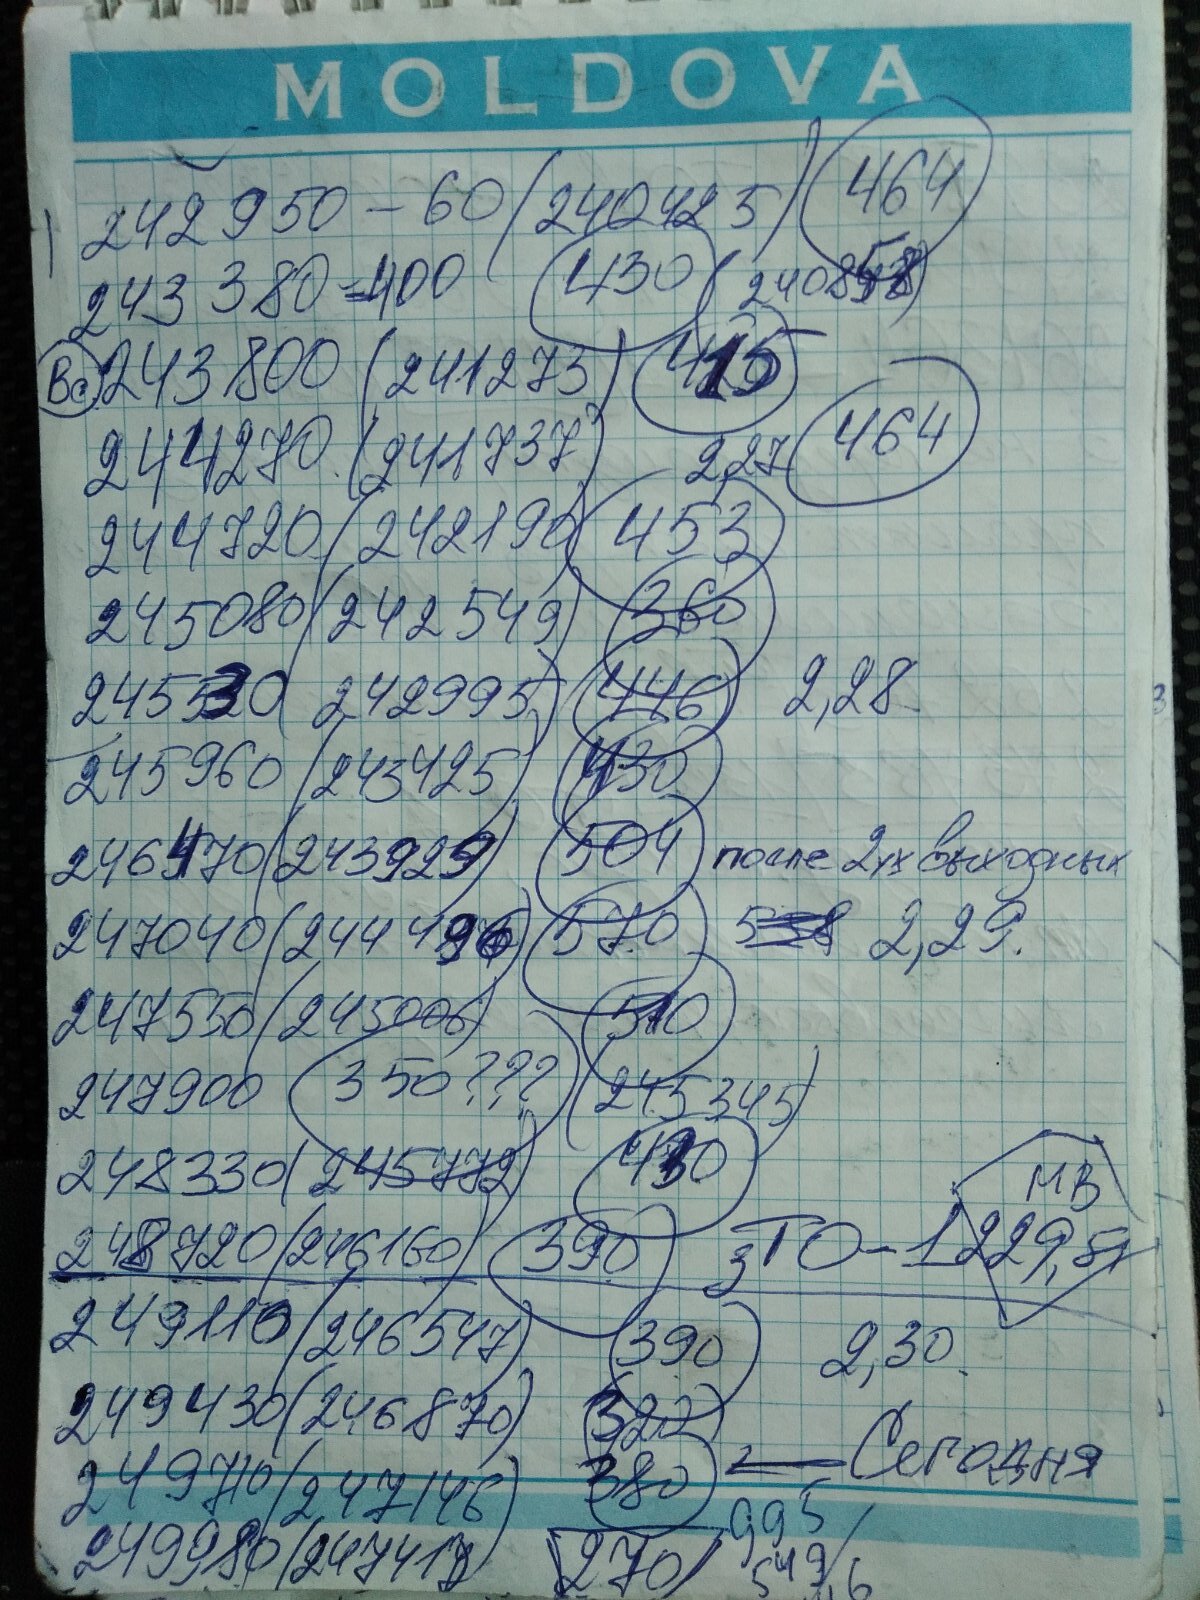 MOLDOVA
242950 - 60 (240425) 464
243380 = 400 430 (
Вс 243800 (241273) 415
244270 (241737) 2,27 464
244720 (242190) 453
245080 (242549) 360
245530 (242995) 446 2,28
245960 (243425) 430
246470 (243929) 504 после 2ух выходных
247040 (244496) 570 2,29.
247550 (245006) 510
247900 350??? (245345)
248330 (245772) 430
248720 (246160) 390 3ТО - 1229,57 МВ
249110 (246547) 390 2,30.
249430 (246870) 322
249710 (247146) 380 Сегодня
249980 (247417) 270 995
549